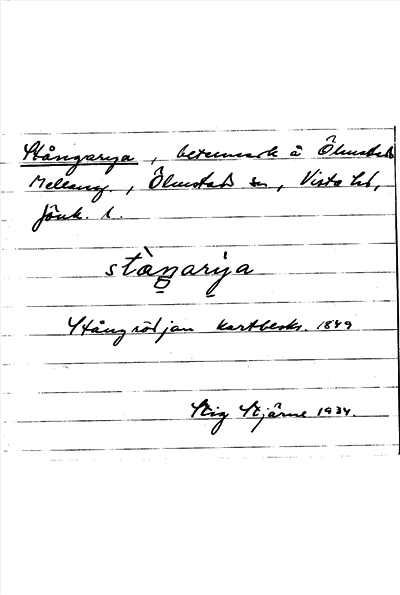 Stångarya, betesmark å Ölmstads
Mellang., Ölmstads sn, Vista hd,
Jönk. l.
stàŋarya
Stångrödjan kartbeskr. 1849
Stig Stjärne 1934.